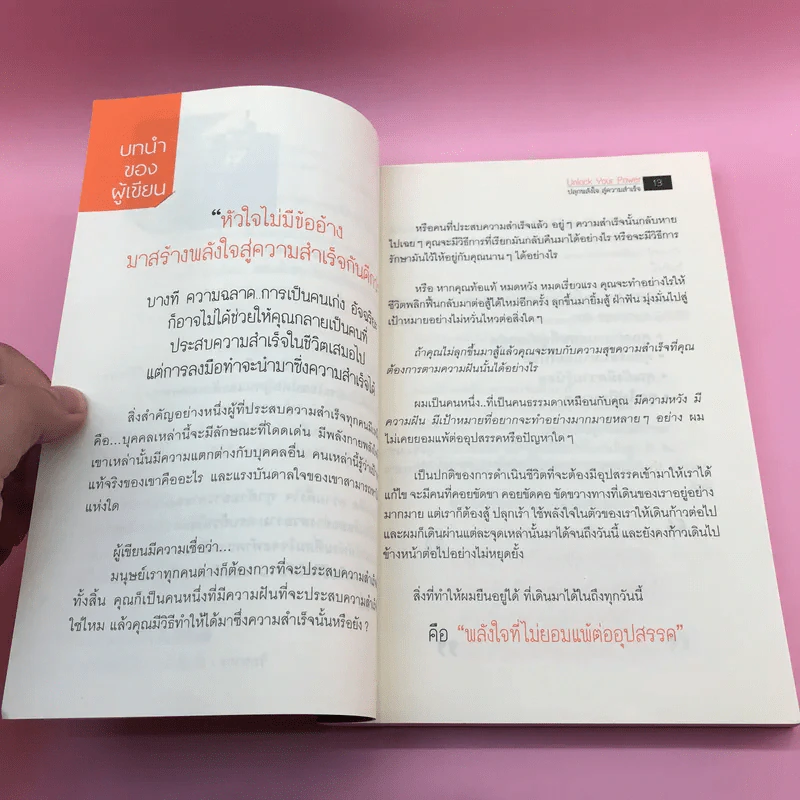 บทนำ
ของ
ผู้เขียน
“หัวใจไม่มีข้ออ้าง
มาสร้างพลังใจสู่ความสำเร็จกัน
บางที ความฉลาด..การเป็นคนเก่ง
ก็อาจไม่ได้ช่วยให้คุณกลายเป็นคนที่
ประสบความสำเร็จในชีวิตเสมอไป
แต่การลงมือทำจะนำมาซึ่งความสำเร็จได้
สิ่งสำคัญอย่างหนึ่งผู้ที่ประสบความสำเร็จทุกคน
คือ...บุคคลเหล่านี้จะมีลักษณะที่โดดเด่น มีพลังกาย
เขาเหล่านั้นมีความแตกต่างกับบุคคลอื่น คนเหล่านี้รู้ว่า
แท้จริงของเขาคืออะไร และแรงบันดาลใจของเขาสามารถ
แห่งใด
ผู้เขียนมีความเชื่อว่า...
มนุษย์เราทุกคนต่างก็ต้องการที่จะประสบความสำเร็จ
ทั้งสิ้น คุณก็เป็นคนหนึ่งที่มีความฝันที่จะประสบความสำเร็จ
ใช่ไหม แล้วคุณมีวิธีทำให้ได้มาซึ่งความสำเร็จนั้นหรือยัง?
Unlock Your Power
ปลุกพลังใจ สู่ความสำเร็จ
13
หรือคนที่ประสบความสำเร็จแล้ว อยู่ๆ ความสำเร็จนั้นกลับหาย
ไปเฉยๆ คุณจะมีวิธีการที่เรียกมันกลับคืนมาได้อย่างไร หรือจะมีวิธีการ
รักษามันไว้ให้อยู่กับคุณนานๆ ได้อย่างไร
หรือ หากคุณท้อแท้ หมดหวัง หมดเรี่ยวแรง คุณจะทำอย่างไรให้
ชีวิตพลิกฟื้นกลับมาต่อสู้ได้ใหม่อีกครั้ง ลุกขึ้นมายิ้มสู้ ฝ่าฟัน มุ่งมั่นไปสู่
เป้าหมายอย่างไม่หวั่นไหวต่อสิ่งใดๆ
ถ้าคุณไม่ลุกขึ้นมาสู้แล้วคุณจะพบกับความสุขความสำเร็จที่คุณ
ต้องการตามความฝันนั้นได้อย่างไร
ผมเป็นคนหนึ่ง..ที่เป็นคนธรรมดาเหมือนกับคุณ มีความหวัง มี
ความฝัน มีเป้าหมายที่อยากจะทำอย่างมากมายหลายๆ อย่าง ผม
ไม่เคยยอมแพ้ต่ออุปสรรคหรือปัญหาใดๆ
เป็นปกติของการดำเนินชีวิตที่จะต้องมีอุปสรรคเข้ามาให้เราได้
แก้ไข จะมีคนที่คอยขัดขา คอยขัดคอ ขัดขวางทางที่เดินของเราอยู่อย่าง
มากมาย แต่เราก็ต้องสู้ ปลุกเร้า ใช้พลังใจในตัวของเราให้เดินก้าวต่อไป
และผมก็เดินผ่านแต่ละจุดเหล่านั้นมาได้จนถึงวันนี้ และยังคงก้าวเดินไป
ข้างหน้าต่อไปอย่างไม่หยุดยั้ง
สิ่งที่ทำให้ผมยืนอยู่ได้ ที่เดินมาได้ในถึงทุกวันนี้
คือ “พลังใจที่ไม่ยอมแพ้ต่ออุปสรรค”